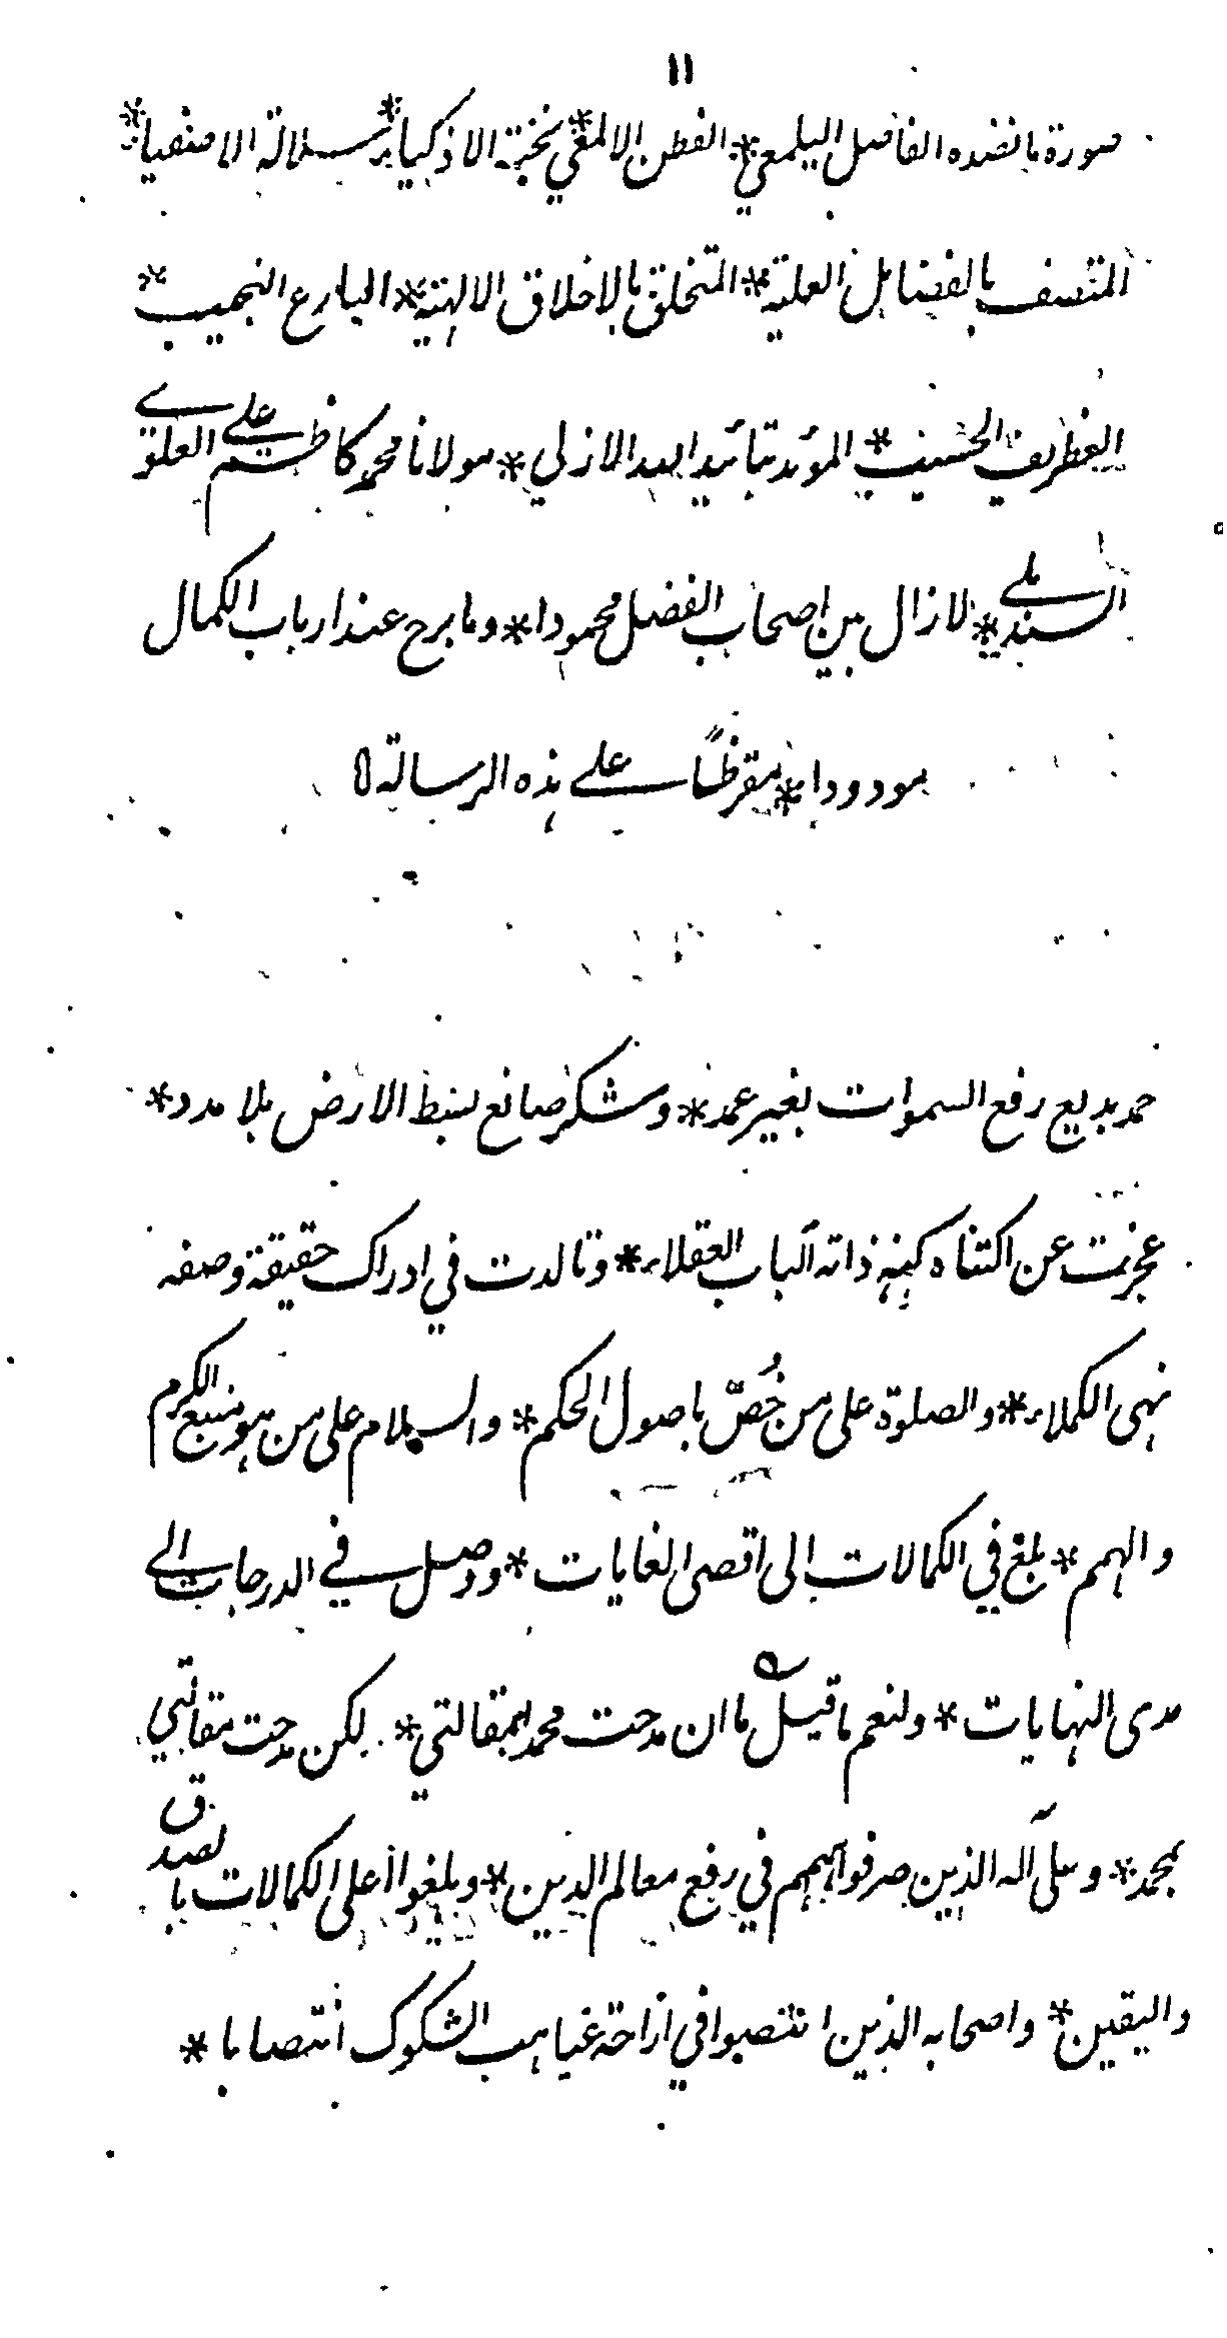 ١١
صورة ما نضده الفاضل اليلمعي * الفطن الالمعي * نخبة الاذكياء * سلالة الاصفياء *
المتصف بالفضايل العلية * المتخلق بالاخلاق الالهية * البارع النجيب *
الغطريف الحسيب * المؤيد بتائيد الازلي * مولانا محمد كاظم علي العلوي
السنديلي * لازال بين اصحاب الفضل محمودا * وما برح عند ارباب الكمال
مودودا * مقرظًا على هذه الرسالة
حمد بديع رفع السموات بغير عمد * وشكر صانع بسط الارض بلا مدد *
عجزت عن اكتناه كنه ذاته الباب العقلاء * وتالدت في ادراك حقيقة وصفه
نهى الكملاء * والصلوة على من خُصّ باصول الحكم * والسلام على من هو منبع الكرم
والهمم * بلغ في الكمالات الى اقصى الغايات * ووصل في الدرجات الى
مدى النهايات * ولنعم ما قيل ما ان مدحت محمدا بمقالتي * لكن مدحت مقالتي
بمحمد * وعلى آله الذين صرفوا هممهم في رفع معالم الدين * وبلغوا اعلى الكمالات بالصدق
واليقين * واصحابه الذين انتصبوا في ازاحة غياهب الشكوك انتصابا *